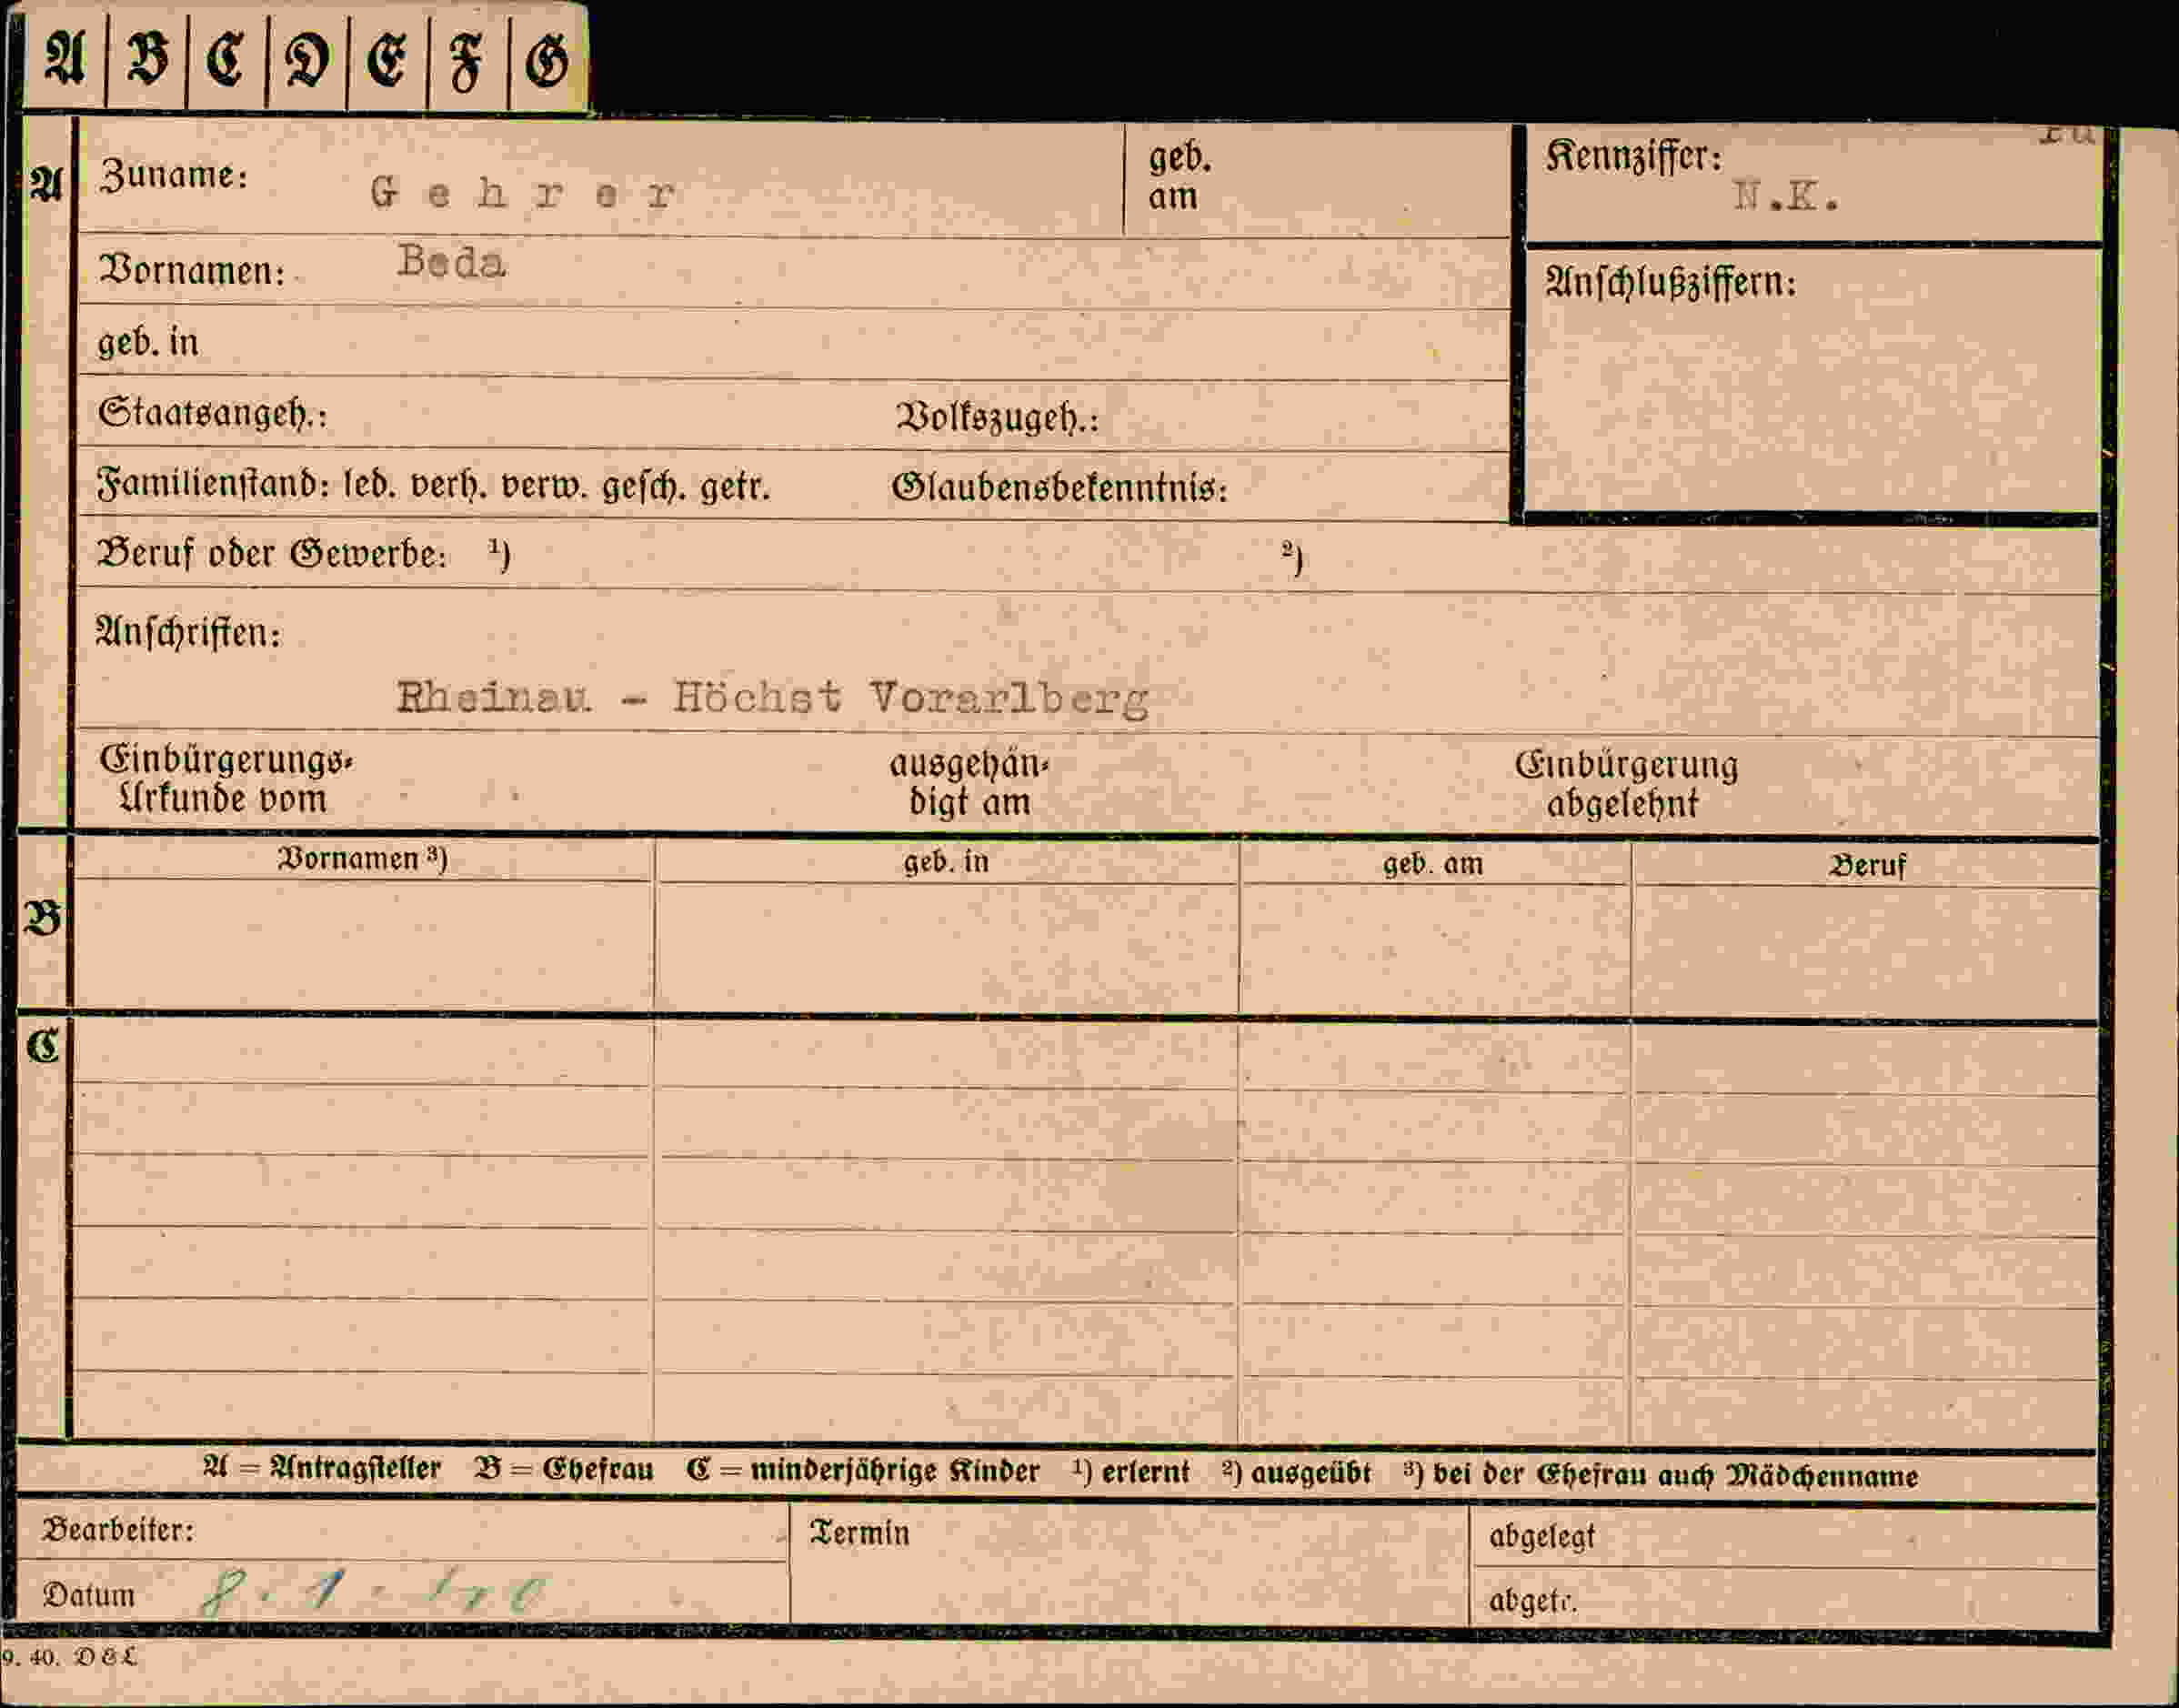 A B C D E F G
A Zuname: Gehrer geb. am Kennziffer: N.K.
Vornamen: Beda Anschlußziffern:
geb. in
Staatsangeh.: Volkszugeh.:
Familienstand: led. verh. verw. gesch. getr. Glaubensbekenntnis:
Beruf oder Gewerbe: ¹) ²)
Anschriften:
Rheinau - Höchst Vorarlberg
Einbürgerungs- ausgehän- Einbürgerung
Urkunde vom digt am abgelehnt
Vornamen ³) geb. in geb. am Beruf
B
C
A = Antragsteller B = Ehefrau C = minderjährige Kinder ¹) erlernt ²) ausgeübt ³) bei der Ehefrau auch Mädchenname
Bearbeiter: Termin abgelegt
Datum 8. 1. abgetr.
9. 40. D&L